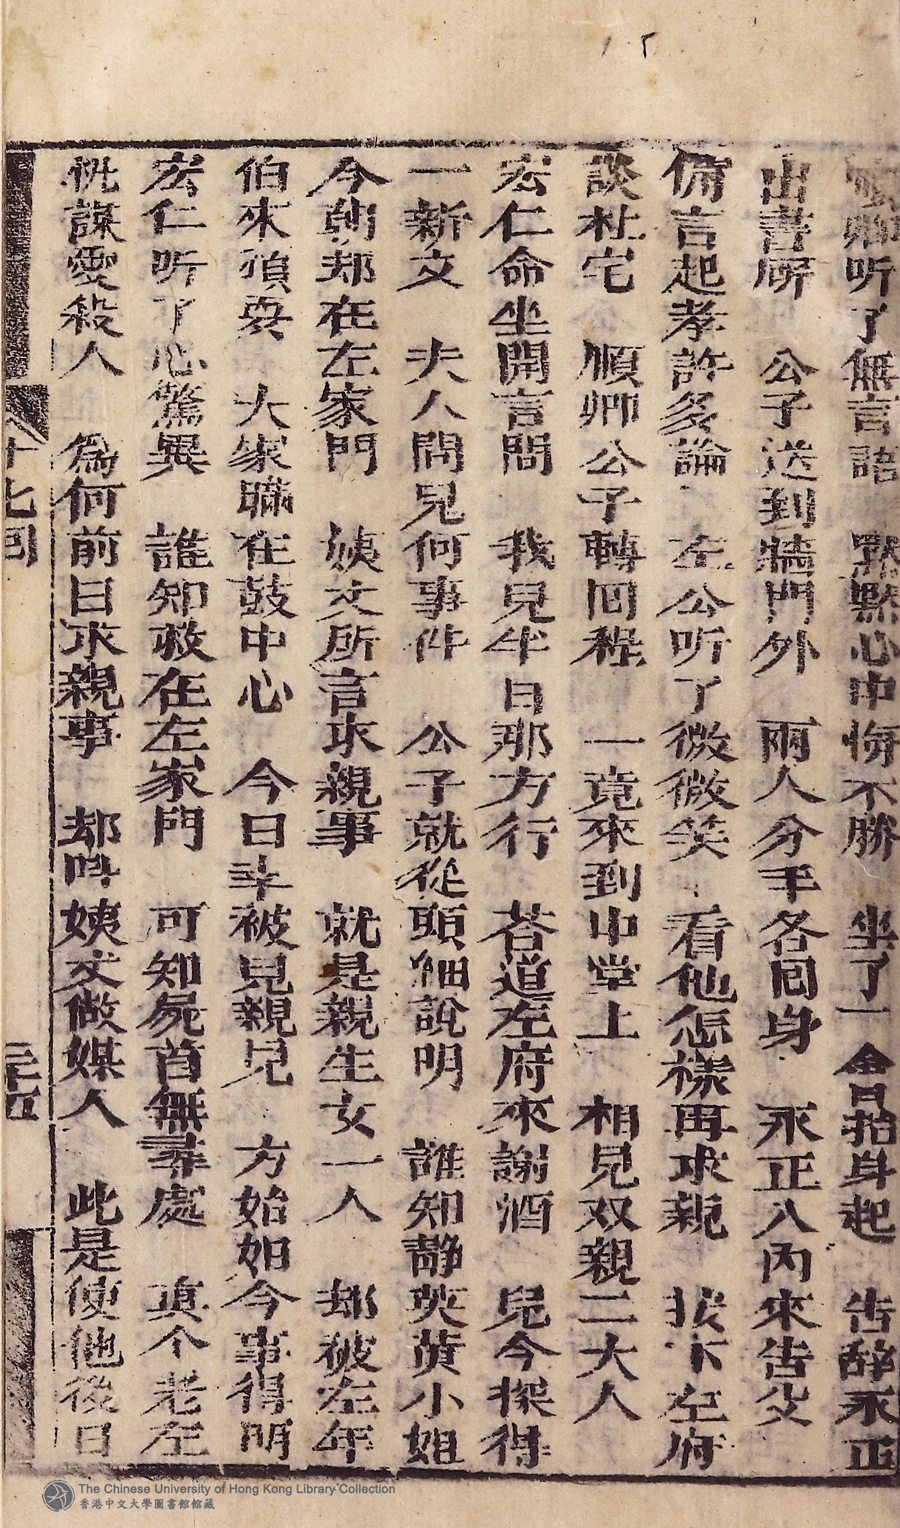 卿听了無言語　默默心中悔不勝　坐了一會抬身起　告辞永正
出書房　公子送到牆門外　兩人分手各回身　永正入內來告父
備言起孝許多論　左公听了微微笑　看他怎樣再求親　按下左府
談杜宅　順卿公子轉回程　一竟來到中堂上　相見双親二大人
宏仁命坐開言問　我兒半日那方行　荅道左府來謝酒　兒今探得
一新文　夫人問兒何事件　公子就從頭細說明　誰知静英黃小姐
今朝却在左家門　姨丈所言求親事　就是親生女一人　却被左年
伯來頂要　大家瞞在鼓中心　今日斗被兒親見　方始如今事得明
宏仁听了心驚異　誰知救在左家門　可知屍首無尋處　真个老左
忱謀愛殺人　為何前日求親事　却呌姨丈做媒人　此是使他後日
十七回
三十五
The Chinese University of Hong Kong Library Collection
香港中文大學圖書館館藏